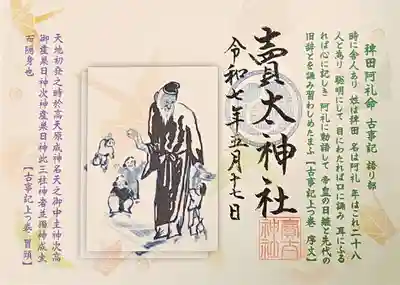 稗田阿礼命 古事記 語り部
時に舎人あり 姓は稗田 名は阿礼 年はこれ二十八
人と為り 聡明にして 目にわたれば口に誦み 耳にふる
れば心に記しき 阿礼に勅語して 帝皇の日継と先代の
旧辞とを誦み習わしめたまふ【古事記上つ巻 序文】
賣太神社
賣太
神社
令和七年五月十七日
天地初発之時於高天原成神名天之御中主神次高
御産巣日神次神産巣日神此三柱神者並独神成坐
而隠身也 【古事記上つ巻 冒頭】